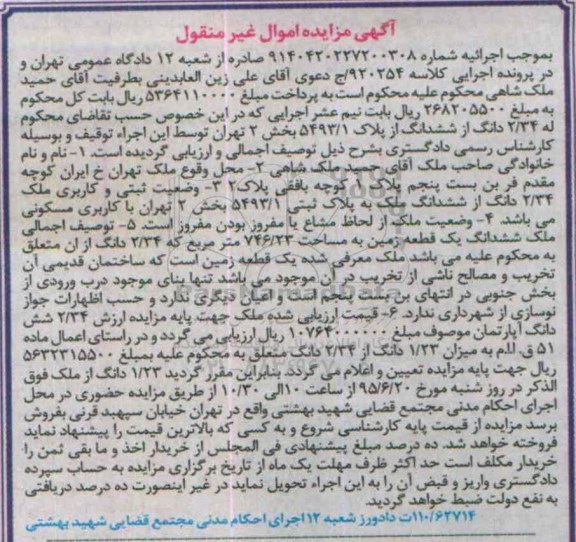 آگهی مزایده اموال غیر منقول
بموجب اجرائیه شماره ۹۱۴۰۴۲۰۲۲۷۲۰۰۳۰۸ صادره از شعبه ۱۲ دادگاه عمومی تهران و
در پرونده اجرایی کلاسه ۹۲۰۲۵۴/ج دعوی آقای علی زین العابدینی بطرفیت آقای حمید
ملک شاهی محکوم علیه محکوم است به پرداخت مبلغ ۵۳۶۴۱۱۰۰۰۰ ریال بابت کل محکوم
به مبلغ ۲۶۸۲۰۵۵۰۰ ریال بابت نیم عشر اجرایی که در این خصوص حسب تقاضای محکوم
له ۲/۳۴ دانگ از ششدانگ از پلاک ۵۴۹۳/۱ بخش ۲ تهران توسط این اجراء توقیف و بوسیله
کارشناس رسمی دادگستری بشرح ذیل توصیف اجمالی و ارزیابی گردیده است. ۱- نام و نام
خانوادگی صاحب ملک آقای حمید ملک شاهی ۲- محل وقوع ملک تهران خ ایران کوچه
مقدم فر بن بست پنجم پلاک ۲ و کوچه بافقی پلاک۲ ۳- وضعیت ثبتی و کاربری ملک
۲/۳۴ دانگ از ششدانگ ملک به پلاک ثبتی ۵۴۹۳/۱ بخش ۲ تهران با کاربری مسکونی
می باشد. ۴- وضعیت ملک از لحاظ مشاع یا مفروز بودن مفروز است. ۵- توصیف اجمالی
ملک ششدانگ یک قطعه زمین به مساحت ۷۴۶/۲۳ متر مربع که ۲/۳۴ دانگ از ان متعلق
به محکوم علیه می باشد ملک معرفی شده یک قطعه زمین است که ساختمان قدیمی آن
تخریب و مصالح ناشی از تخریب در آن موجود می باشد تنها بنای موجود درب ورودی از
بخش جنوبی در انتهای بن بست پنجم است و اعیان دیگری ندارد و حسب اظهارات جواز
نوسازی از شهرداری ندارد. ۶- قیمت ارزیابی شده ملک جهت پایه مزایده ارزش ۲/۳۴ شش
دانگ آپارتمان موصوف مبلغ ریال ارزیابی می گردد و در راستای اعمال ماده
۵۱ ق.ا.ا.م به میزان ۱/۲۳ دانگ از ۲/۳۴ دانگ متعلق به محکوم علیه بمبلغ ۵۶۳۲۳۱۵۵۰۰
ریال جهت پایه مزایده تعیین و اعلام می گردد بنابراین مقرر گردید ۱/۲۳ دانگ از ملک فوق
الذکر در روز شنبه مورخ ۹۵/۶/۲۰ از ساعت ۱۰الی ۱۰/۳۰ از طریق مزایده حضوری در محل
اجرای احکام مدنی مجتمع قضایی شهید بهشتی واقع در تهران خیابان سپهبد قرنی بفروش
برسد مزایده از قیمت پایه کارشناسی شروع و به کسی که بالاترین قیمت را پیشنهاد نماید
فروخته خواهد شد. ده درصد مبلغ پیشنهادی فی المجلس از خریدار اخذ و ما بقی ثمن را
خریدار مکلف است حد اکثر ظرف مهلت یک ماه از تاریخ برگزاری مزایده به حساب سپرده
دادگستری واریز و قبض آن را به این اجراء تحویل نماید در غیر اینصورت ده درصد دریافتی
به نفع دولت ضبط خواهد گردید.
۱۱۰/۶۲۷۱۴ت دادورز شعبه ۱۲ اجرای احکام مدنی مجتمع قضایی شهید بهشتی